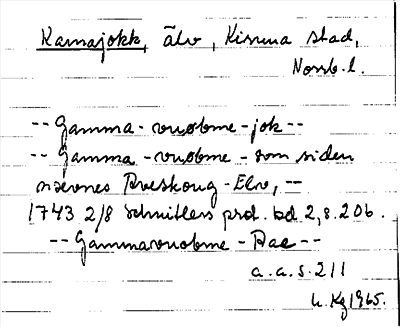 Kamajokk, älv, Kiruna stad,
Norrb. l.
-- Gamma-vuobme-jok --
-- Gamma-vuobme - som siden
nævnes Præskoug-Elv, --
1743 2/8 Schnitlers prot. bd 2, s. 206.
-- Gammavuobme-Aae --
a. a. s. 211
U. Kg 1965.